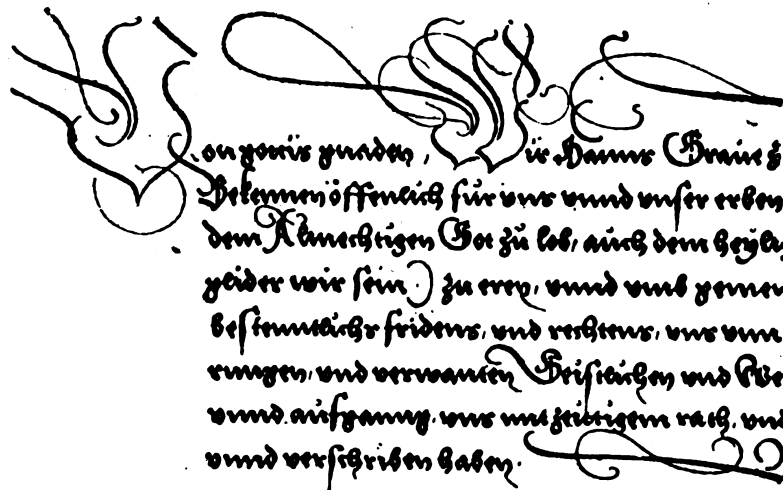 Von gottis gnaden, Wir Hanns Graue z
Bekennen öffenlich für vns vnnd vnser erben
dem Almechtigen Got zů lob, auch dem heyli
glider wir sein) zu eren, vnnd vmb gemein
bestenntlichs fridens, vnd rechtens, vns vnn
rungen, vnd verwanten Geistlichen vnd We
vnnd aufganng, vns mit zeittigem rath, vnd
vnnd verschriben haben.